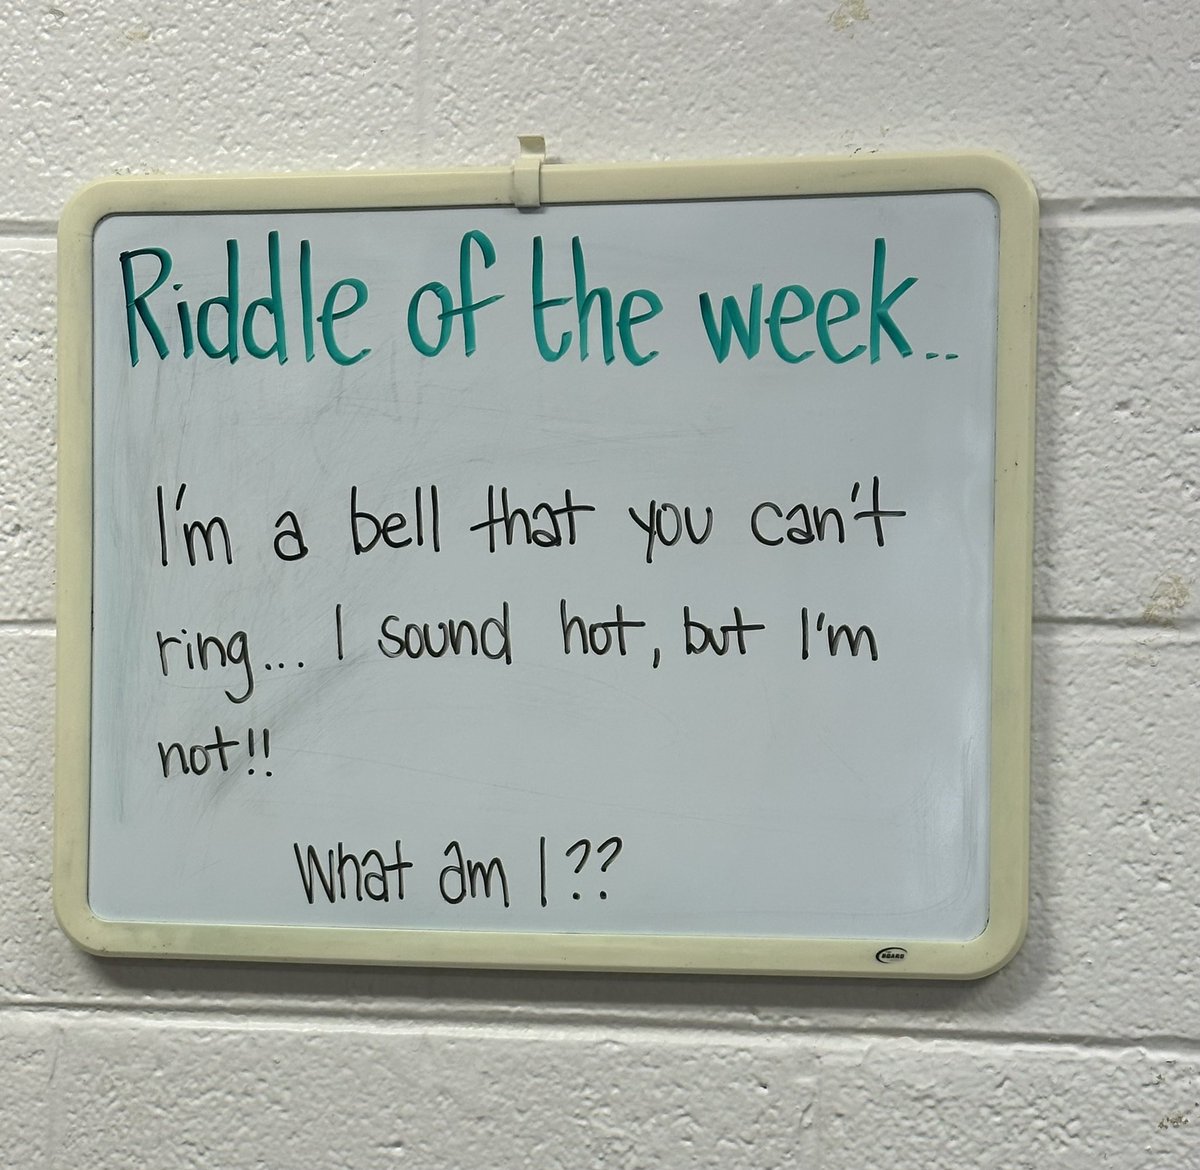 Riddle of the week..
I'm a bell that you can't
ring... I sound hot, but I'm
not!!
What am I??
BOARD